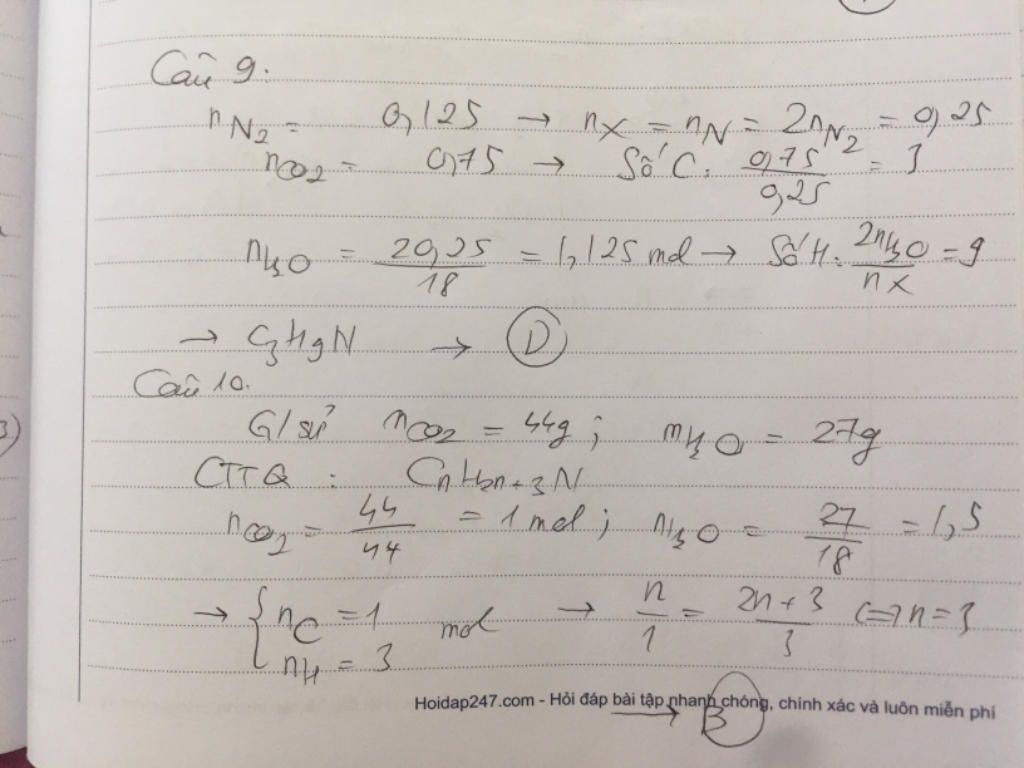 Câu 9.
nN2 = 0,125 → nX = nN = 2nN2 = 0,25
nCO2 = 0,75 → Số C: 0,75/0,25 = 3
nH2O = 20,25/18 = 1,125 mol → Số H: 2nH2O/nX = 9
→ C3H9N → D
Câu 10.
G/sử nCO2 = 44g; mH2O = 27g
CTTQ : CnH2n+3N
nCO2 = 44/44 = 1 mol; nH2O = 27/18 = 1,5
→ { nC = 1 nH = 3 mol → n/1 = 2n+3/3 <=> n = 3
3)
Hoidap247.com - Hỏi đáp bài tập nhanh chóng, chính xác và luôn miễn phí
→ B